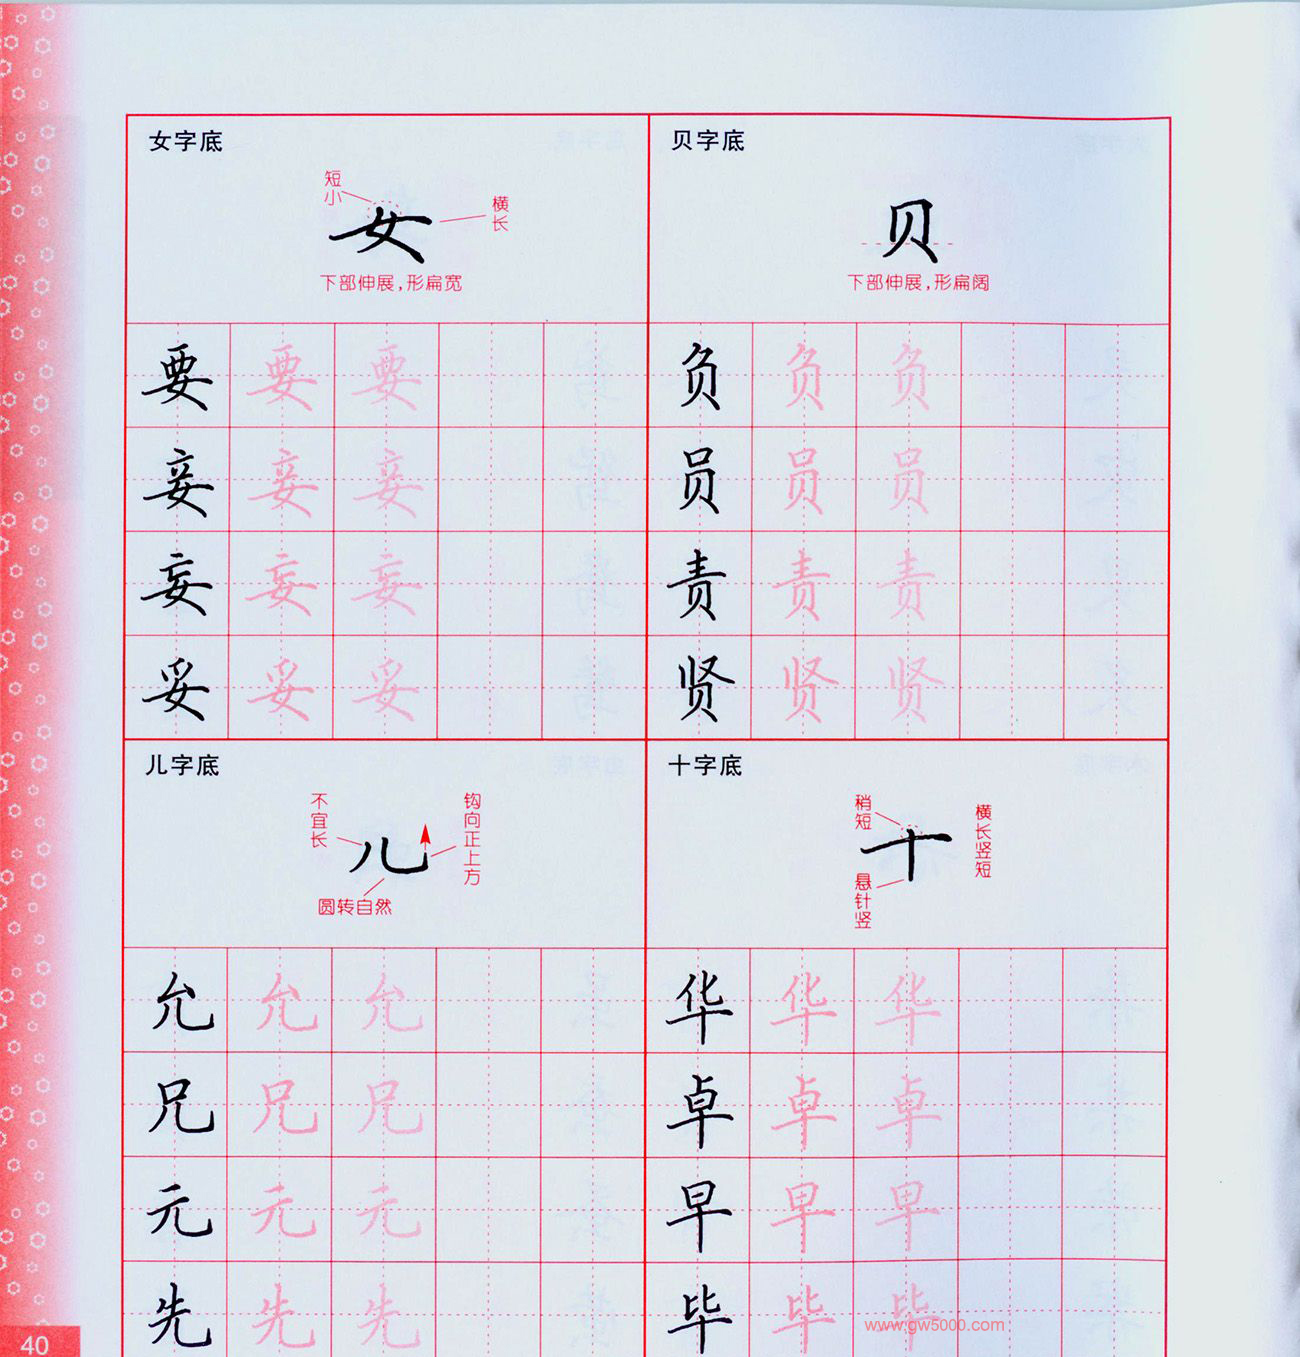 女字底
短小
女
横长
下部伸展,形扁宽
要 要 要
妾 妾 妾
妄 妄 妄
妥 妥 妥
贝字底
贝
下部伸展,形扁阔
负 负 负
员 员 员
责 责 责
贤 贤 贤
儿字底
不宜长
儿
钩向正上方
圆转自然
允 允 允
兄 兄 兄
元 元 元
先 先 先
十字底
稍短
十
横长竖短
悬针竖
华 华 华
卓 卓 卓
早 早 早
毕 毕 毕
www.gw5000.com
40